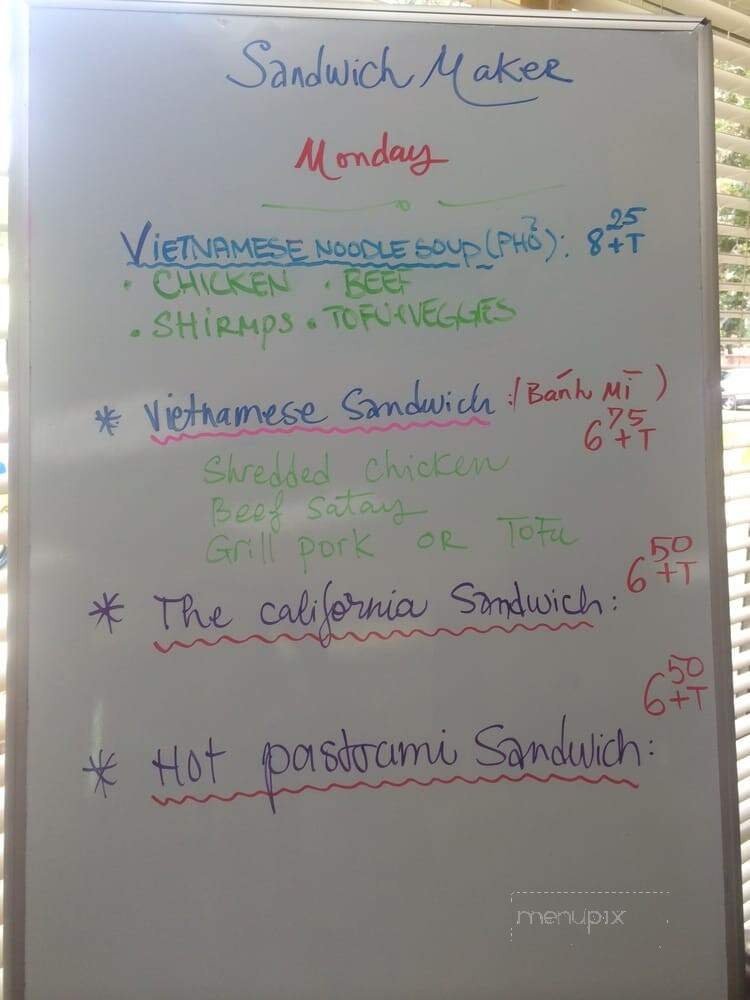 Sandwich Maker
Monday
VIETNAMESE NOODLE SOUP (PHỞ): 8 25 +T
• CHICKEN • BEEF
• SHIRMPS • TOFU+VEGGIES
* Vietnamese Sandwich: (BáNh Mī)
6 75 +T
Shredded chicken
Beef Satay
Grill pork OR Tofu
* The california Sandwich: 6 50 +T
6 50 +T
* Hot pastrami Sandwich:
menupix